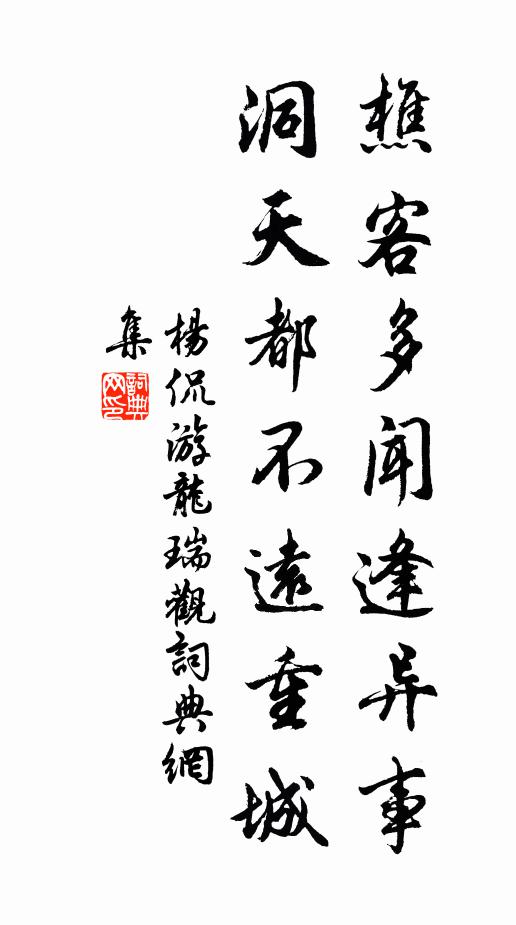 樵客多聞逢异事
洞天都不遠重城
楊侃游龍瑞觀詞典網
集
詞典
网印